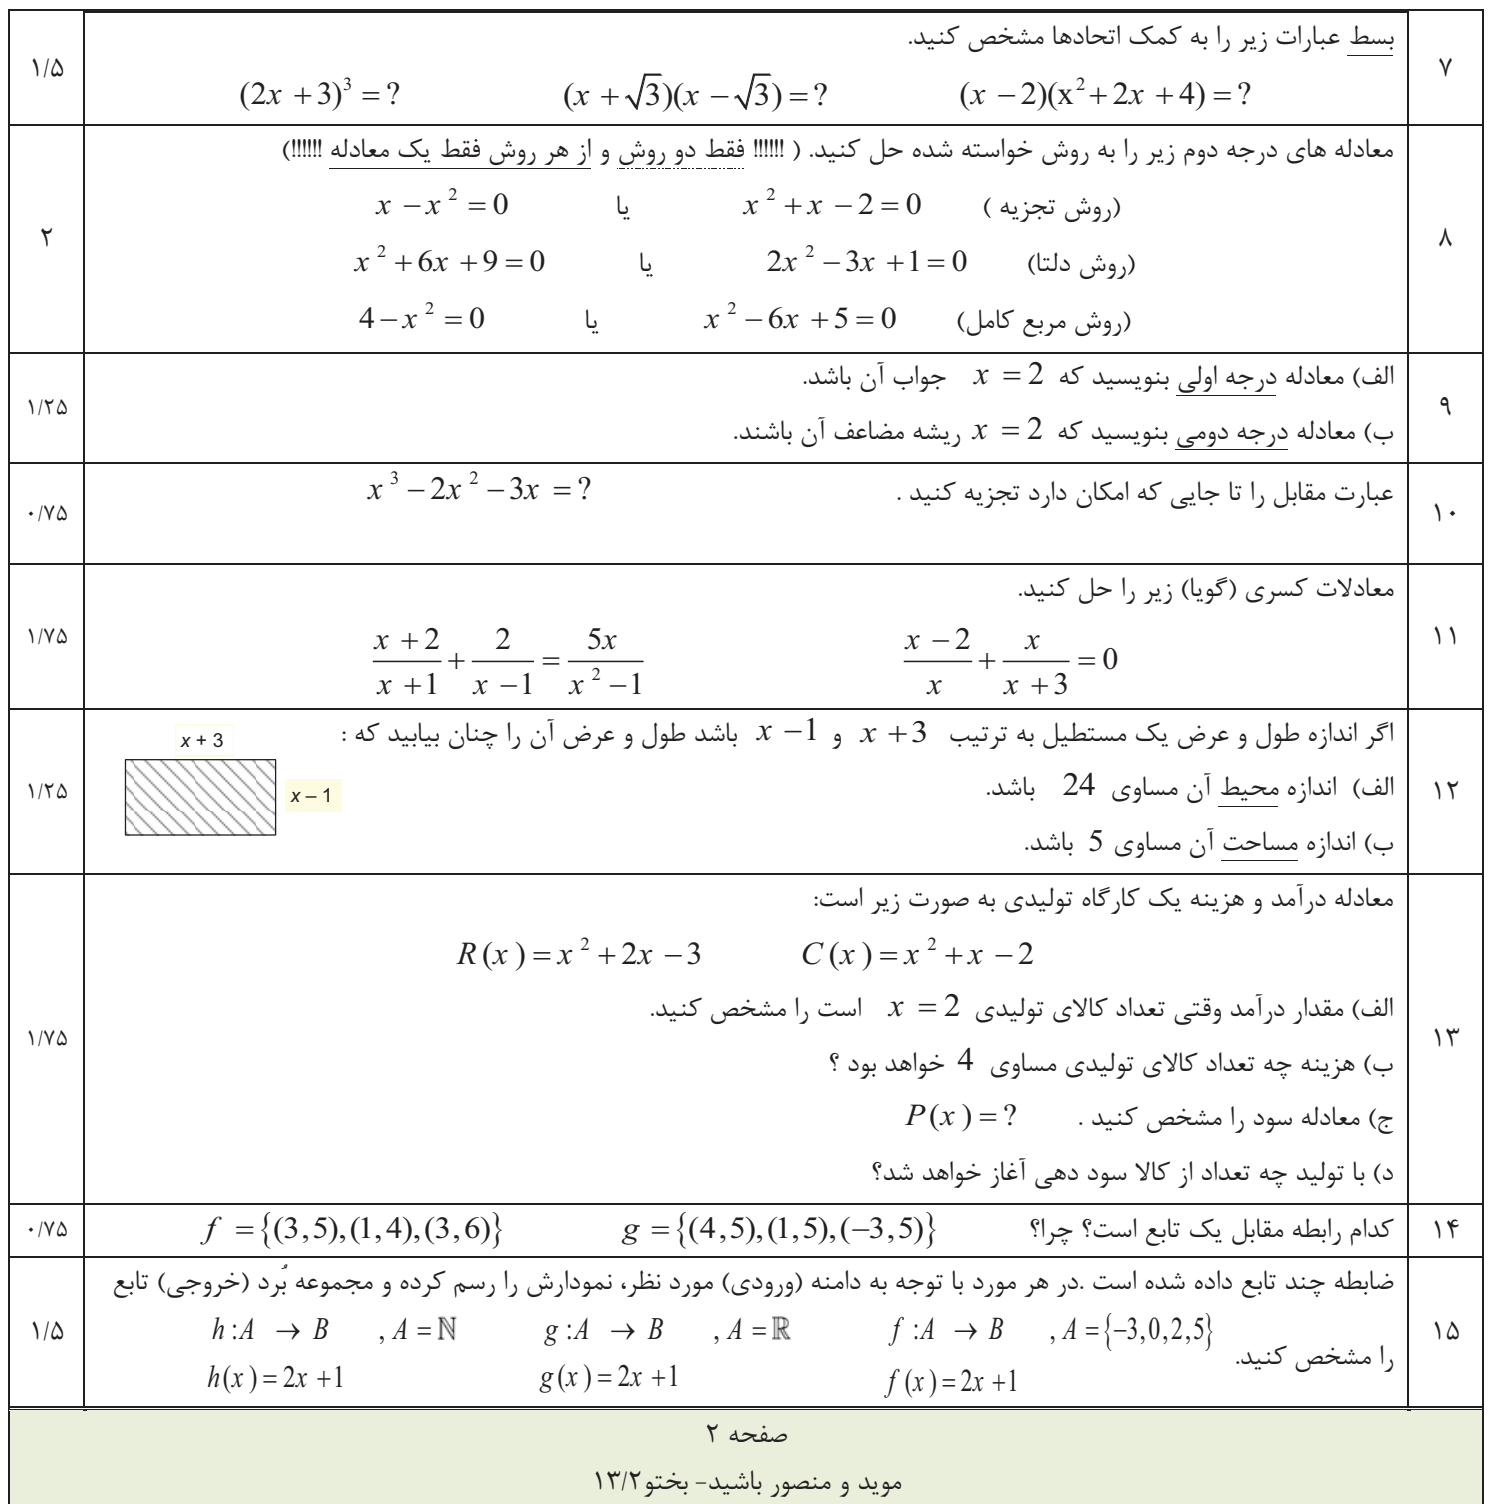 ۷ بسط عبارات زیر را به کمک اتحادها مشخص کنید. ۱/۵
(x − 2)(x² + 2x + 4) = ? (x + √3)(x − √3) = ? (2x + 3)³ = ?
۸ معادله های درجه دوم زیر را به روش خواسته شده حل کنید. ( !!!!!! فقط دو روش و از هر روش فقط یک معادله !!!!!!) ۲
(روش تجزیه ) x² + x − 2 = 0 یا x − x² = 0
(روش دلتا) 2x² − 3x + 1 = 0 یا x² + 6x + 9 = 0
(روش مربع کامل) x² − 6x + 5 = 0 یا 4 − x² = 0
۹ الف) معادله درجه اولی بنویسید که x = 2 جواب آن باشد. ۱/۲۵
ب) معادله درجه دومی بنویسید که x = 2 ریشه مضاعف آن باشند.
۱۰ عبارت مقابل را تا جایی که امکان دارد تجزیه کنید . x³ − 2x² − 3x = ? ۰/۷۵
۱۱ معادلات کسری (گویا) زیر را حل کنید. ۱/۷۵
(x − 2)/x + x/(x + 3) = 0 (x + 2)/(x + 1) + 2/(x − 1) = 5x/(x² − 1)
۱۲ اگر اندازه طول و عرض یک مستطیل به ترتیب x + 3 و x − 1 باشد طول و عرض آن را چنان بیابید که : ۱/۲۵
الف) اندازه محیط آن مساوی 24 باشد.
ب) اندازه مساحت آن مساوی 5 باشد.
x + 3
x − 1
۱۳ معادله درآمد و هزینه یک کارگاه تولیدی به صورت زیر است: ۱/۷۵
R(x) = x² + 2x − 3 C(x) = x² + x − 2
الف) مقدار درآمد وقتی تعداد کالای تولیدی x = 2 است را مشخص کنید.
ب) هزینه چه تعداد کالای تولیدی مساوی 4 خواهد بود ؟
ج) معادله سود را مشخص کنید . P(x) = ?
د) با تولید چه تعداد از کالا سود دهی آغاز خواهد شد؟
۱۴ کدام رابطه مقابل یک تابع است؟ چرا؟ g = {(4,5),(1,5),(−3,5)} f = {(3,5),(1,4),(3,6)} ۰/۷۵
۱۵ ضابطه چند تابع داده شده است .در هر مورد با توجه به دامنه (ورودی) مورد نظر، نمودارش را رسم کرده و مجموعه بُرد (خروجی) تابع ۱/۵
را مشخص کنید. f : A → B , A = {−3,0,2,5} g : A → B , A = ℝ h : A → B , A = ℕ
f(x) = 2x + 1 g(x) = 2x + 1 h(x) = 2x + 1
صفحه ۲
موید و منصور باشید- بختو۱۳/۲